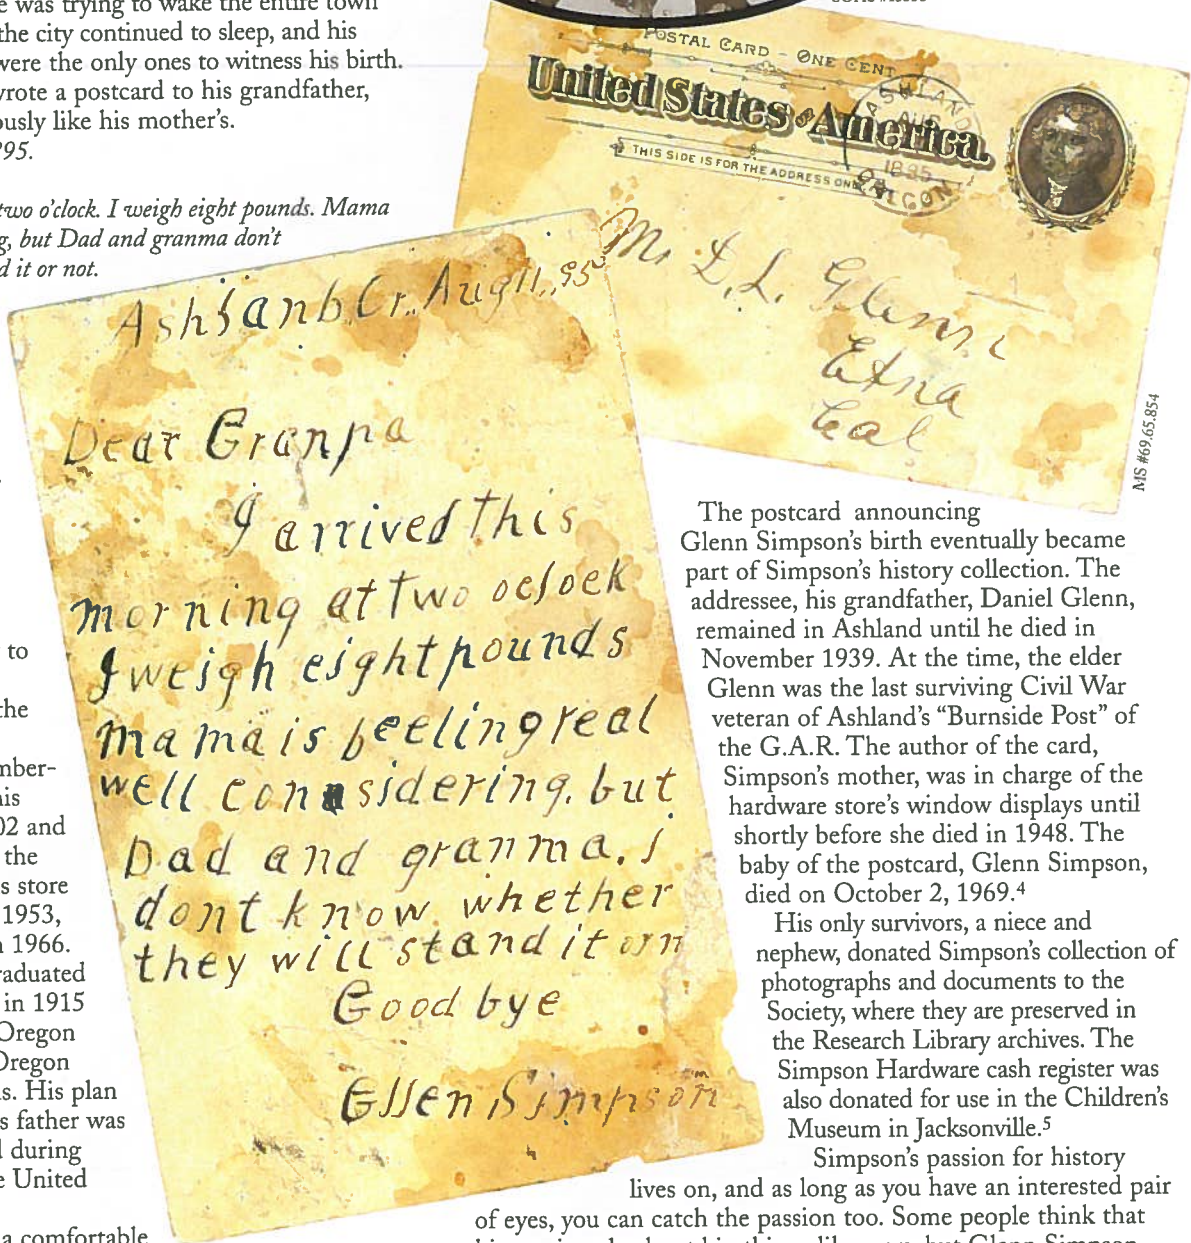 e was trying to wake the entire town
the city continued to sleep, and his
were the only ones to witness his birth.
wrote a postcard to his grandfather,
ously like his mother's.
'95.
two o'clock. I weigh eight pounds. Mama
g, but Dad and granma don't
d it or not.
POSTAL CARD – ONE CENT
United States of America.
THIS SIDE IS FOR THE ADDRESS ONLY
ASHLAND
AUG
1895
OREGON
Mr D. L. Glenn
Etna
Cal
MS #69.65.854
Ashland, Or., Aug 11, 95
Dear Granpa
I arrived this
morning at two oclock
I weigh eight pounds
mama is feeling real
well considering, but
Dad and granma. I
dont know whether
they will stand it orn
Good bye
Glen Simpson
to
the
mber-
his
02 and
the
s store
1953,
n 1966.
raduated
in 1915
Oregon
Oregon
s. His plan
s father was
l during
e United
a comfortable
The postcard announcing
Glenn Simpson's birth eventually became
part of Simpson's history collection. The
addressee, his grandfather, Daniel Glenn,
remained in Ashland until he died in
November 1939. At the time, the elder
Glenn was the last surviving Civil War
veteran of Ashland's “Burnside Post” of
the G.A.R. The author of the card,
Simpson's mother, was in charge of the
hardware store's window displays until
shortly before she died in 1948. The
baby of the postcard, Glenn Simpson,
died on October 2, 1969.⁴
His only survivors, a niece and
nephew, donated Simpson's collection of
photographs and documents to the
Society, where they are preserved in
the Research Library archives. The
Simpson Hardware cash register was
also donated for use in the Children's
Museum in Jacksonville.⁵
Simpson's passion for history
lives on, and as long as you have an interested pair
of eyes, you can catch the passion too. Some people think that